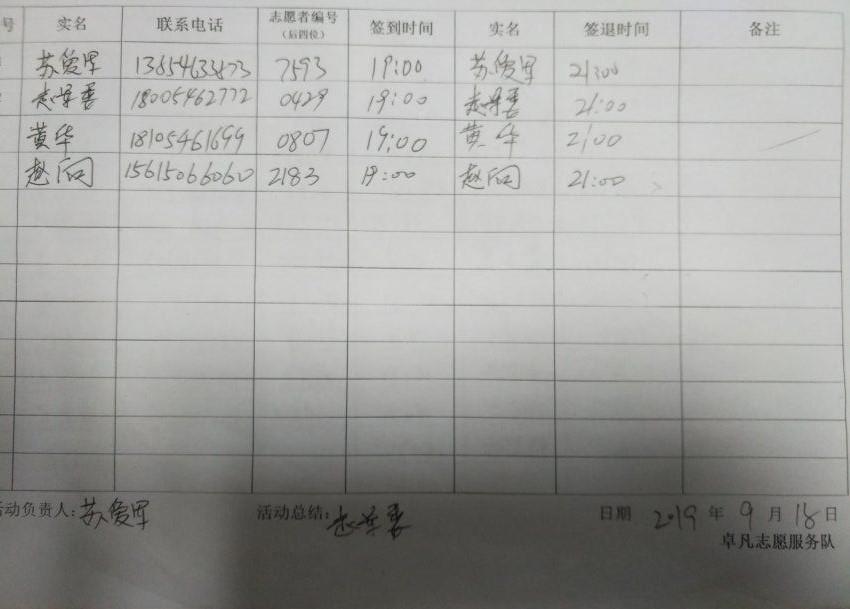 号 实名 联系电话 志愿者编号 签到时间 实名 签退时间 备注
（后四位）
苏爱军 13854633873 7593 19:00 苏爱军 21:00
18005462772 0429 19:00 21:00
黄华 18105461699 0807 19:00 黄华 21:00
赵向 15615066060 2183 19:00 赵向 21:00
活动负责人:苏爱军 活动总结: 日期 2019 年 9 月 18 日
卓凡志愿服务队